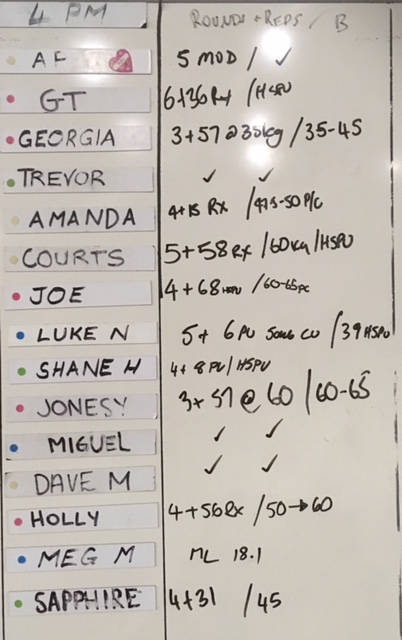 4 PM ROUNDS + REPS / B
AF 5 MOD / ✓
GT 6+36 Rx / HSPU
GEORGIA 3+57 @ 35kg / 35-45
TREVOR ✓ ✓
AMANDA 4+15 Rx / 47.5-50 P/C
COURTS 5+58 Rx / 60kg / HSPU
JOE 4+68 HSPU / 60-65 PC
LUKE N 5+ 6 PU 50kg CU / 39 HSPU
SHANE H 4+ 8 PU / HSPU
JONESY 3+57 @ 60 / 60-65
MIGUEL ✓ ✓
DAVE M ✓ ✓
HOLLY 4+56 Rx / 50→60
MEG M ML 18.1
SAPPHIRE 4+31 / 45